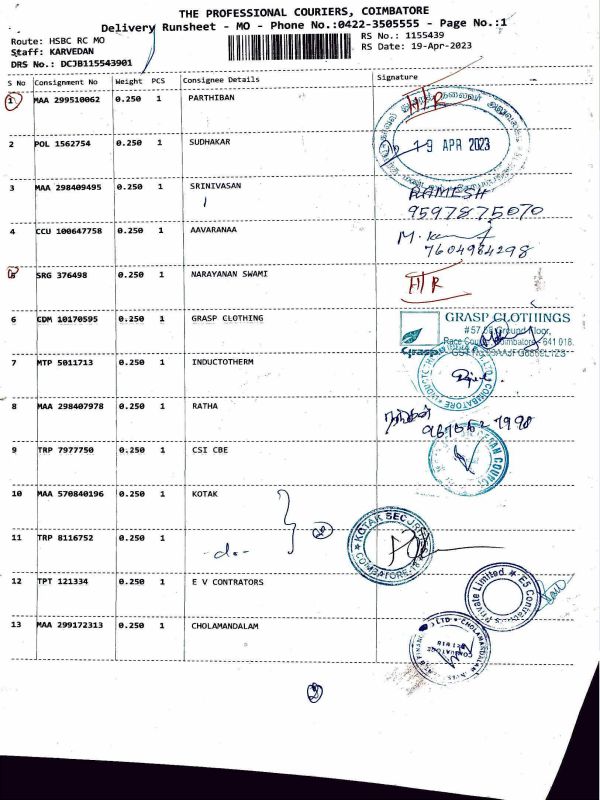 THE PROFESSIONAL COURIERS, COIMBATORE
Delivery Runsheet - MO - Phone No.:0422-3505555 - Page No.:1
Route: HSBC RC MO
RS No.: 1155439
Staff: KARVEDAN
RS Date: 19-Apr-2023
DRS No.: DCJB115543901
S No Consignment No Weight PCS Consignee Details Signature
1 MAA 299510062 0.250 1 PARTHIBAN H/R
2 POL 1562754 0.250 1 SUDHAKAR 19 APR 2023
3 MAA 298409495 0.250 1 SRINIVASAN RAMESH
9597875070
4 CCU 100647758 0.250 1 AAVARANAA
7604984298
5 SRG 376498 0.250 1 NARAYANAN SWAMI H/R
6 CDM 10170595 0.250 1 GRASP CLOTHING GRASP CLOTHINGS
Ground Floor,
Coimbatore - 641 018.
Grasp
7 MTP 5011713 0.250 1 INDUCTOTHERM COIMBATORE
8 MAA 298407978 0.250 1 RATHA
9 TRP 7977750 0.250 1 CSI CBE
10 MAA 570840196 0.250 1 KOTAK
KOTAK SECURI
COIMBATORE-18
11 TRP 8116752 0.250 1 -do-
12 TPT 121334 0.250 1 E V CONTRATORS Private Limited
13 MAA 299172313 0.250 1 CHOLAMANDALAM CHOLAMANDALAM